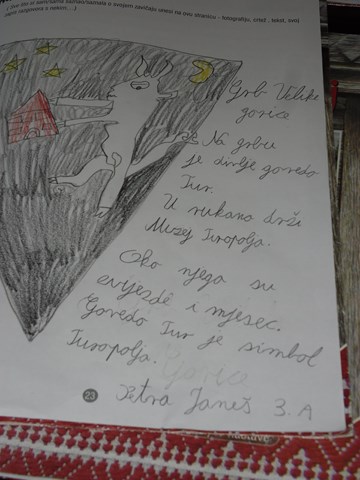 ( Sve što si sam/sama saznao/saznala o svojem zavičaju unesi na ovu stranicu - fotografiju, crtež , tekst, svoj
razgovora s nekim, ...)
Grb Velike
gorice
Na grbu
je divlje govedo
Tur.
U rukama drži
Muzej Turopolja.
Oko njega su
zvijezde i mjesec.
Govedo Tur je simbol
Turopolja. Gorice
23 Petra Janeš 3. A